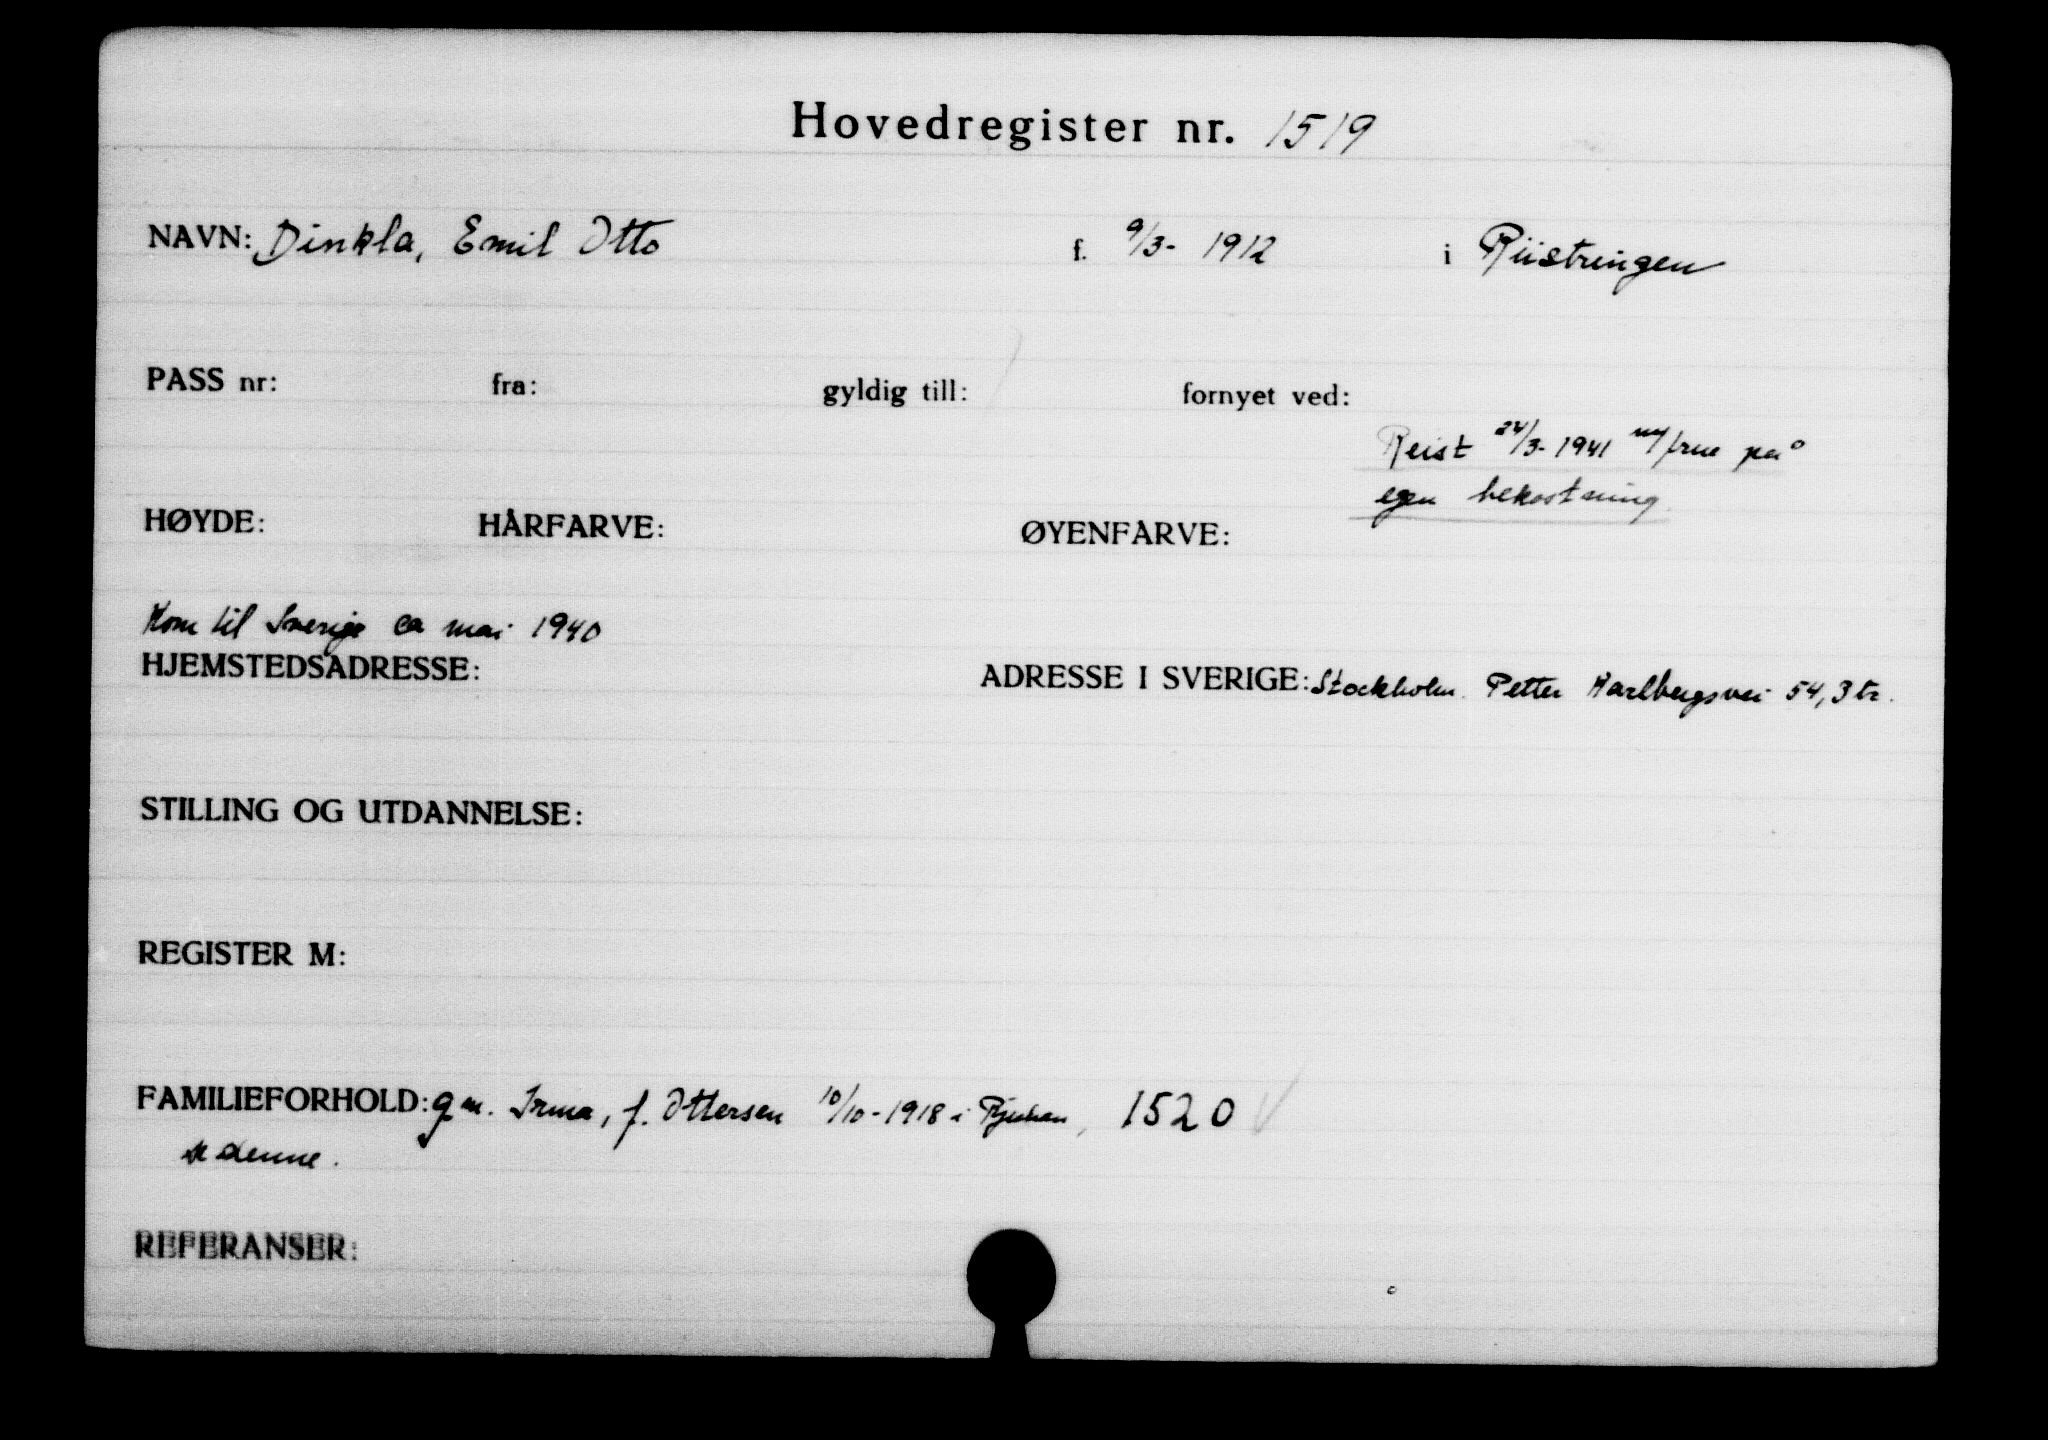 Hovedregister nr. 1519
NAVN: Dinkla, Emil Otto f. 9/3- 1912 i Rüstringen
PASS nr: fra: gyldig till: fornyet ved:
Reist 24/3- 1941 m/frue på
egen bekostning.
HØYDE: HÅRFARVE: ØYENFARVE:
Kom til Sverige ca mai 1940
HJEMSTEDSADRESSE: ADRESSE I SVERIGE: Stockholm. Petter Karlbergsvei 54, 3 tr.
STILLING OG UTDANNELSE:
REGISTER M:
FAMILIEFORHOLD: gm. Irma, f. Ottersen 10/10-1918 i Rjukan, 1520
se denne.
REFERANSER: